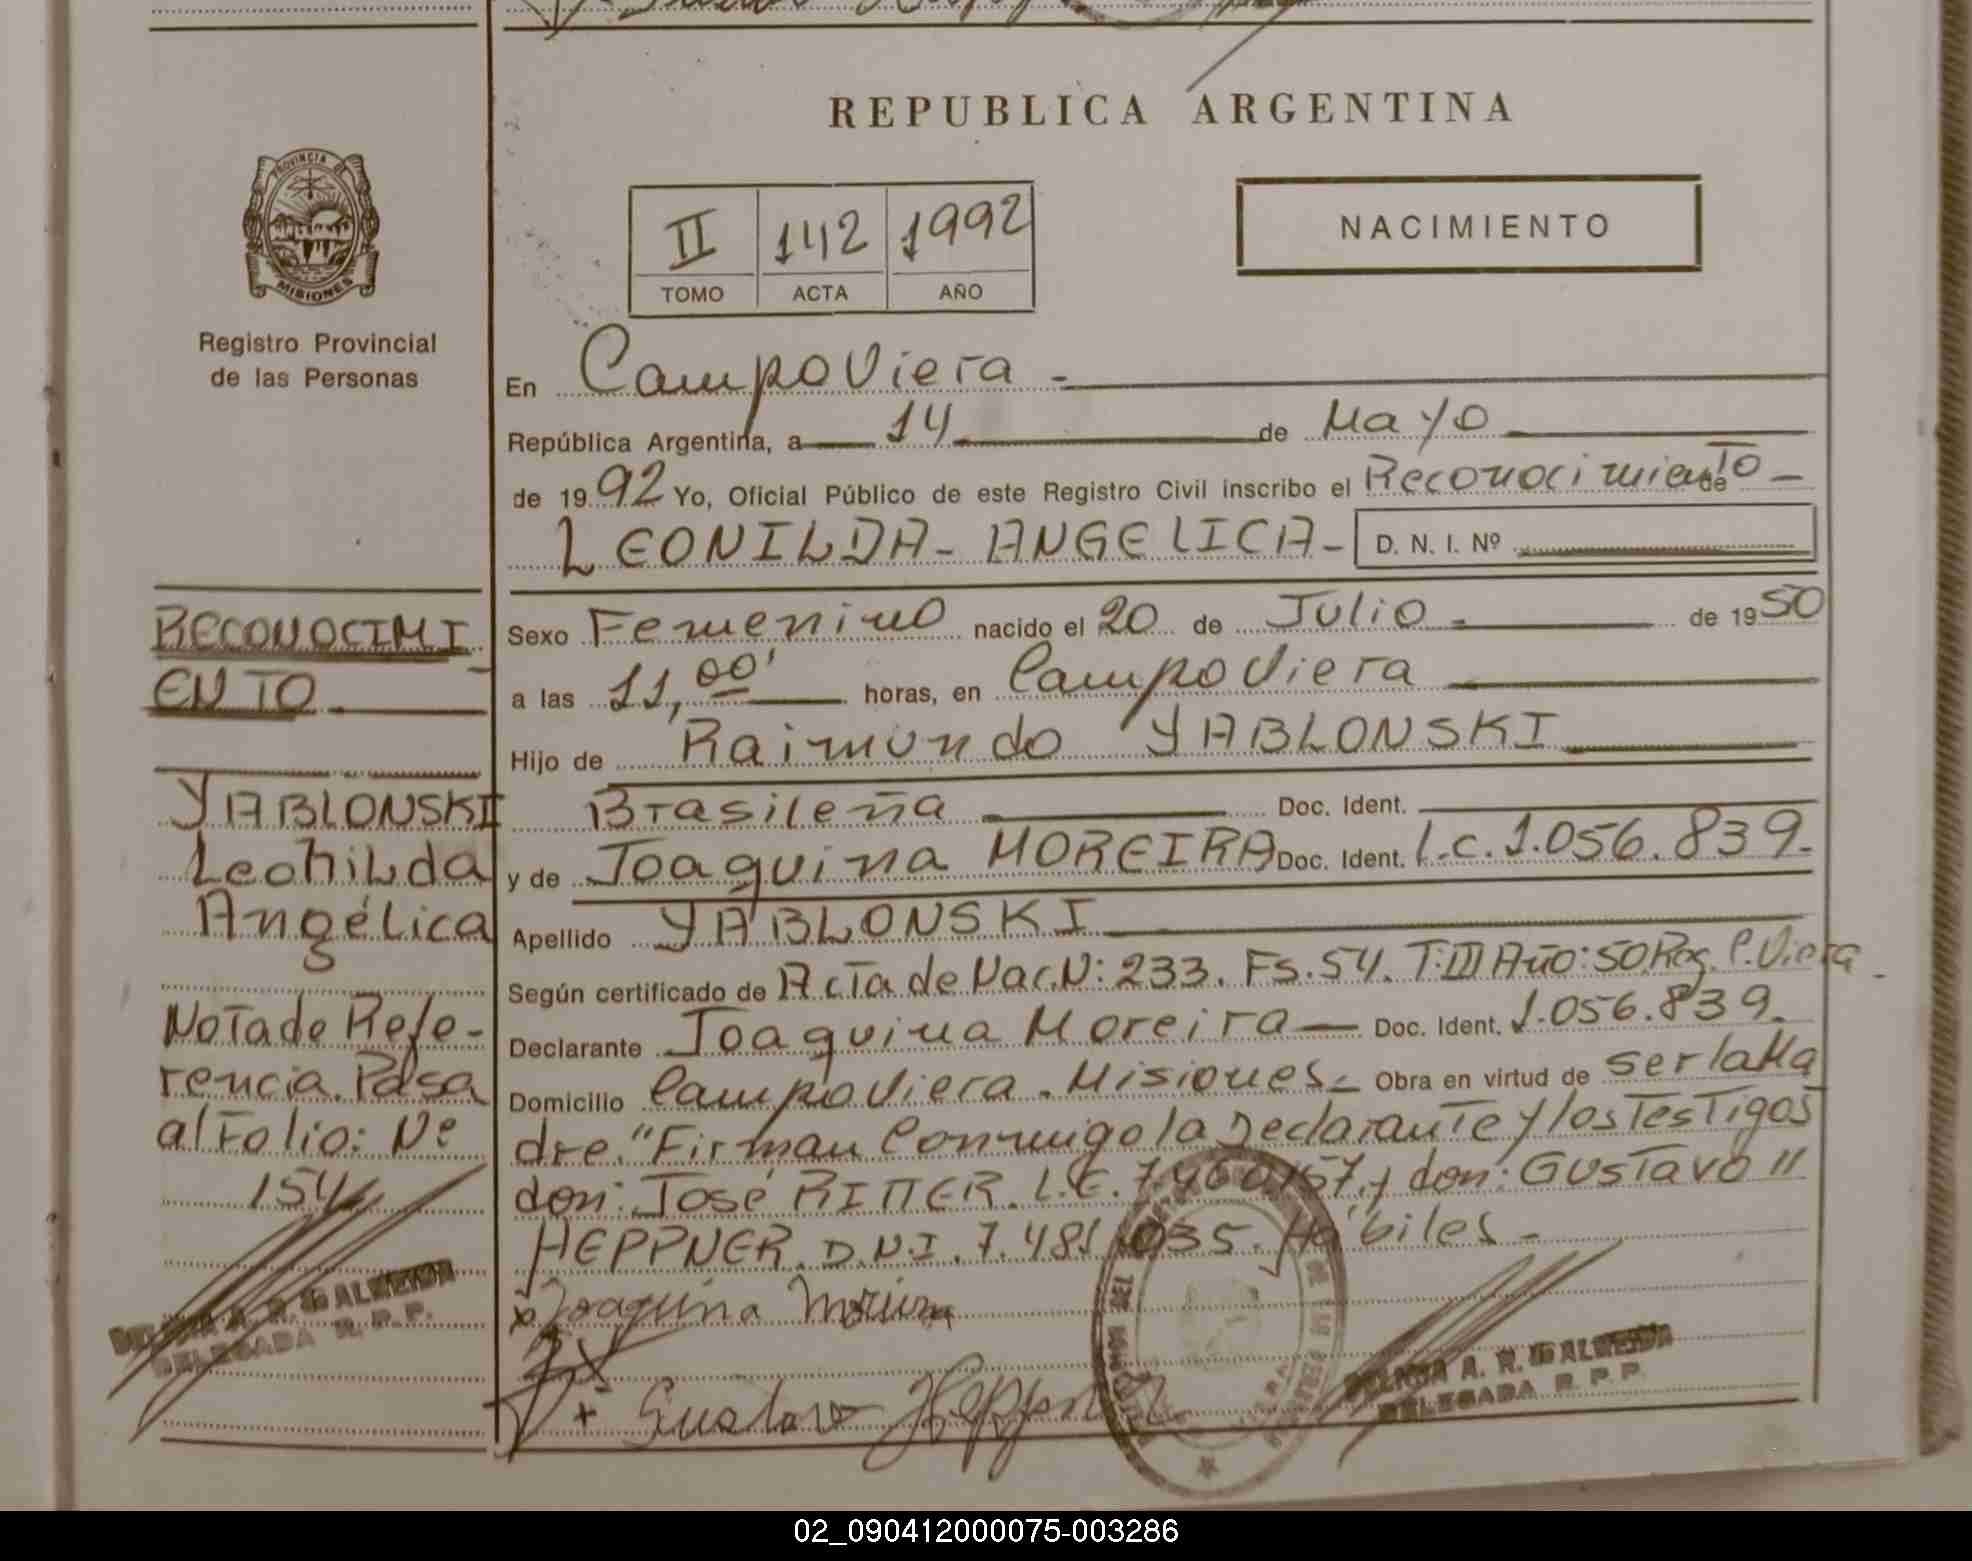 REPUBLICA ARGENTINA
PROVINCIA DE
MISIONES
Registro Provincial
de las Personas
II 142 1992
TOMO ACTA AÑO
NACIMIENTO
En Campo Viera -
República Argentina, a 14 de Mayo
de 1992 Yo, Oficial Público de este Registro Civil inscribo el Reconocimiento de -
LEONILDA - ANGELICA - D. N. I. Nº
Sexo Femenino nacido el 20 de Julio - de 1950
a las 11,00' horas, en Campo Viera
Hijo de Raimundo YABLONSKI
Brasileña Doc. Ident.
y de Joaquina MOREIRA Doc. Ident. L.C. 1.056.839.
Apellido YABLONSKI
Según certificado de Acta de Nac. N: 233. Fs. 54. T: III Año: 50. Reg. C. Viera -
Declarante Joaquina Moreira Doc. Ident. 1.056.839.
Domicilio Campo Viera. Misiones - Obra en virtud de ser la Ma
dre. "Firman Conmigo la Declarante y los Testigos
don: José RITTER. L.E. 7.460.157. y don: GUSTAVO "
HEPPNER. D.N.I. 7.481.035. Hábiles -
x Joaquina Moreira
+ Gustavo Heppner
RECONOCIMI
ENTO
YABLONSKI
Leonilda
Angélica
Nota de Refe-
rencia. Pasa
al Folio: Nº
154
A. R. de ALMEIDA
DELEGADA R. P. P.
A. R. de ALMEIDA
DELEGADA R. P. P.
02_090412000075-003286